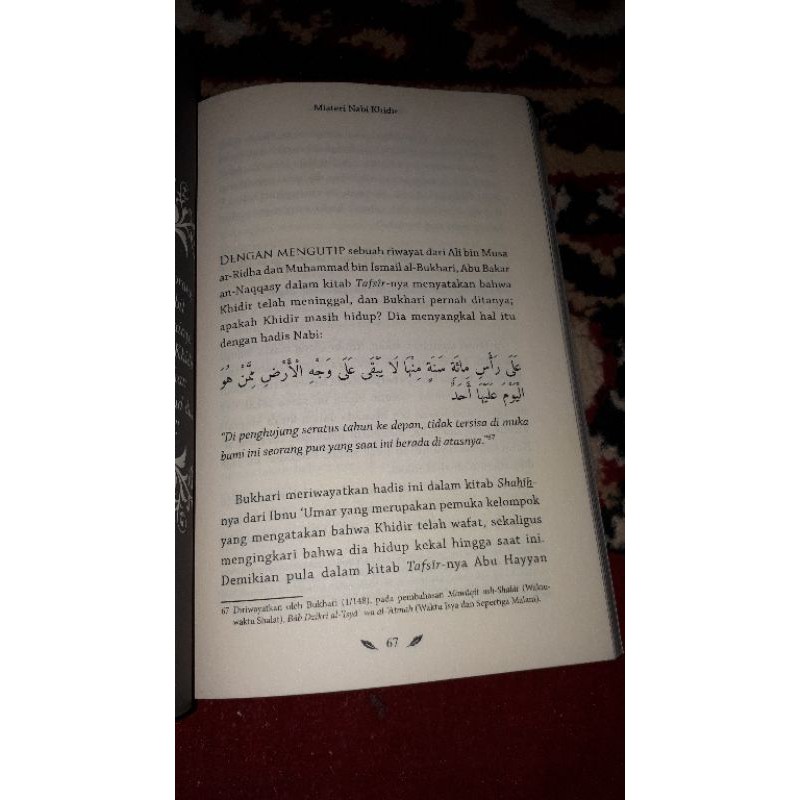 Misteri Nabi Khidir
DENGAN MENGUTIP sebuah riwayat dari Ali bin Musa
ar-Ridha dan Muhammad bin Ismail al-Bukhari, Abu Bakar
an-Naqqasy dalam kitab Tafsîr-nya menyatakan bahwa
Khidir telah meninggal, dan Bukhari pernah ditanya;
apakah Khidir masih hidup? Dia menyangkal hal itu
dengan hadis Nabi:
عَلَى رَأْسِ مِائَةِ سَنَةٍ مِنْهَا لَا يَبْقَى عَلَى وَجْهِ الْأَرْضِ مِمَّنْ هُوَ
الْيَوْمَ عَلَيْهَا أَحَدٌ
"Di penghujung seratus tahun ke depan, tidak tersisa di muka
bumi ini seorang pun yang saat ini berada di atasnya."67
Bukhari meriwayatkan hadis ini dalam kitab Shahîh-
nya dari Ibnu 'Umar yang merupakan pemuka kelompok
yang mengatakan bahwa Khidir telah wafat, sekaligus
mengingkari bahwa dia hidup kekal hingga saat ini.
Demikian pula dalam kitab Tafsîr-nya Abu Hayyan
67 Diriwayatkan oleh Bukhari (1/148), pada pembahasan Mawâqît ash-Shalât (Waktu-
waktu Shalat), Bâb Dzikri al-'Isyâ' wa al-'Atmah (Waktu Isya dan Sepertiga Malam).
67